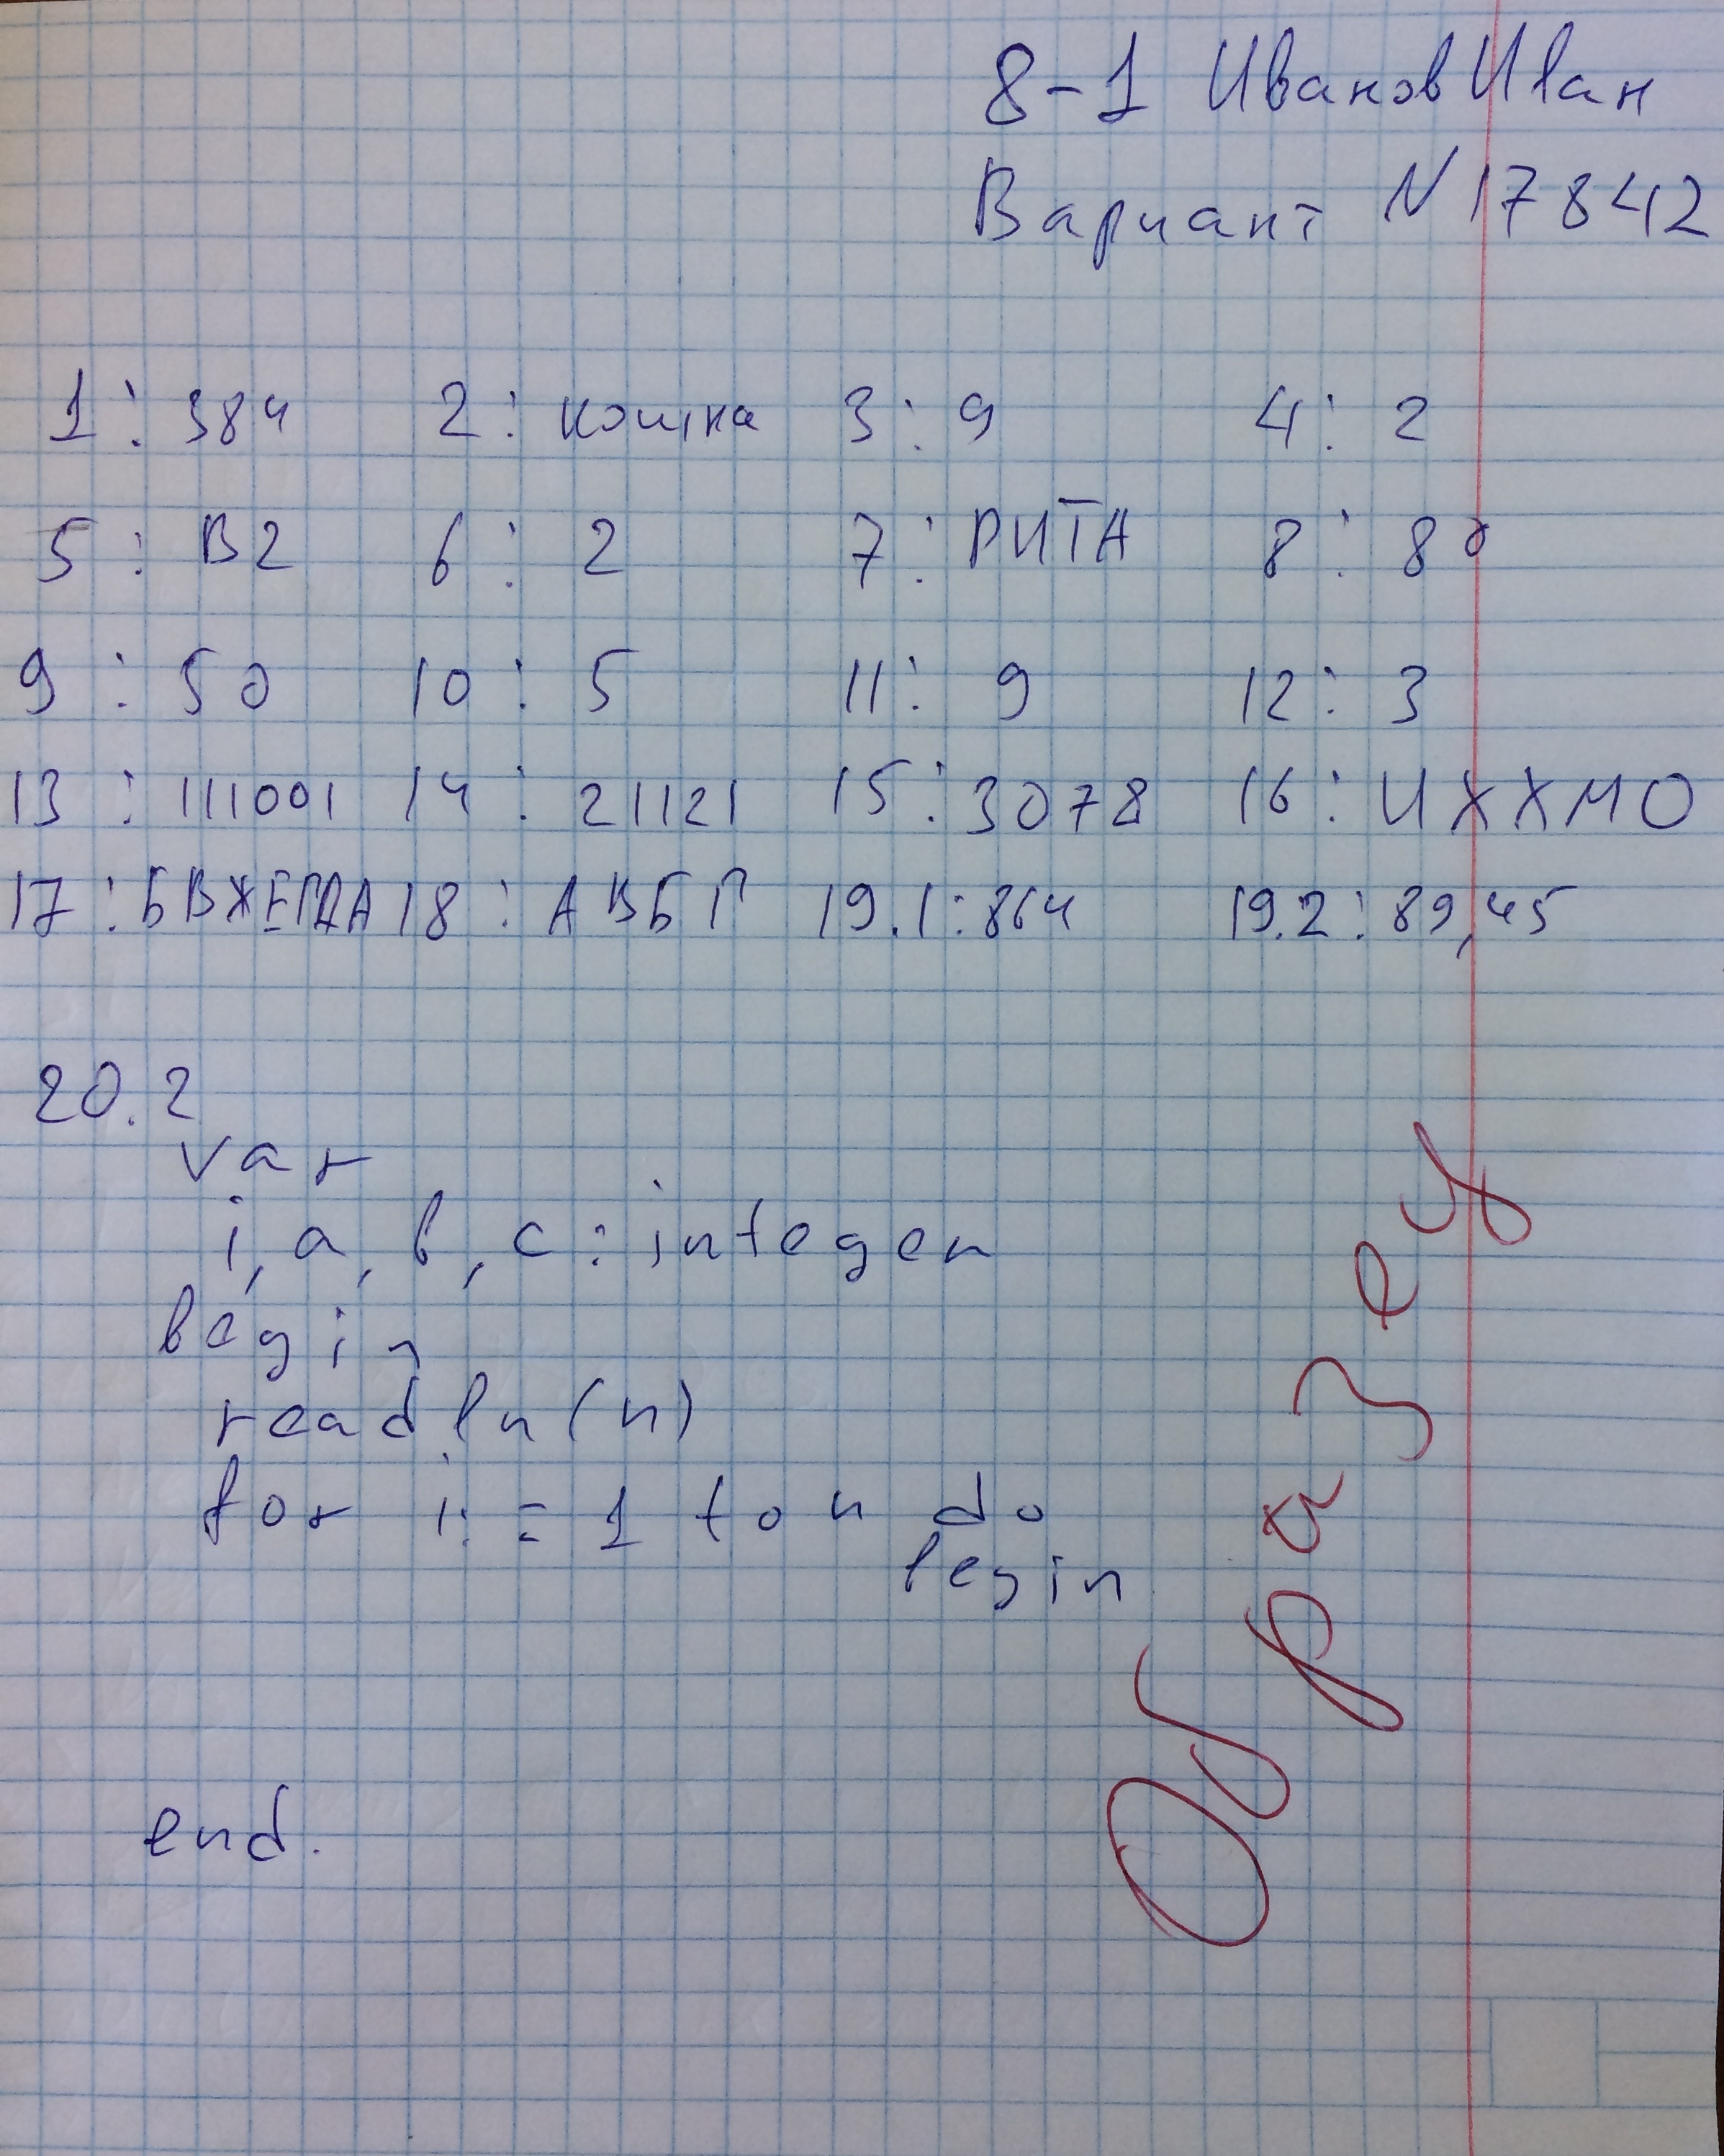 8-1 Иванов Иван
Вариант N17842
1: 384 2: кошка 3: 9 4: 2
5: В2 6: 2 7: РИТА 8: 80
9: 50 10: 5 11: 9 12: 3
13: 111001 14: 21121 15: 3078 16: ИХХМО
17: БВЖЕГДА 18: АВБГ 19.1: 864 19.2: 89,45
20.2
var
i, a, b, c: integer
begin
readln(n)
for i:=1 to n do
begin
end.
Образец